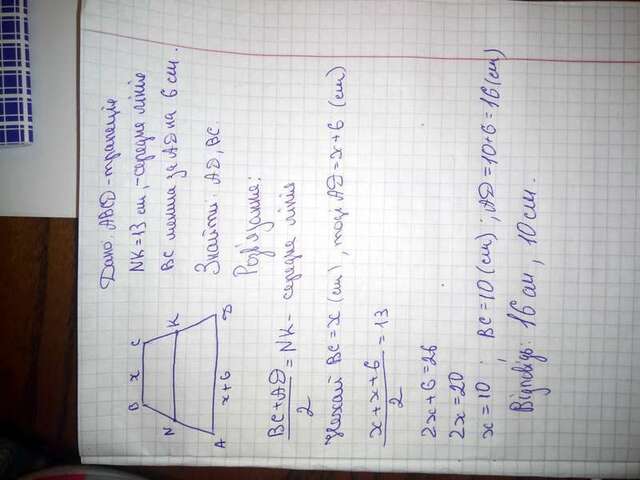 Дано: ABCD-трапеція
NK=13 см,-середня лінія
BC менша за AD на 6 см.
Знайти: AD, BC.
Розв'язання:
B x C
N K
A x+6 D
BC+AD/2 = NK - середня лінія
Нехай BC=x (см), тоді AD=x+6 (см)
x+x+6/2 = 13
2x+6=26
2x=20
x=10 ; BC=10(см); AD=10+6=16(см)
Відповідь: 16 см, 10 см.